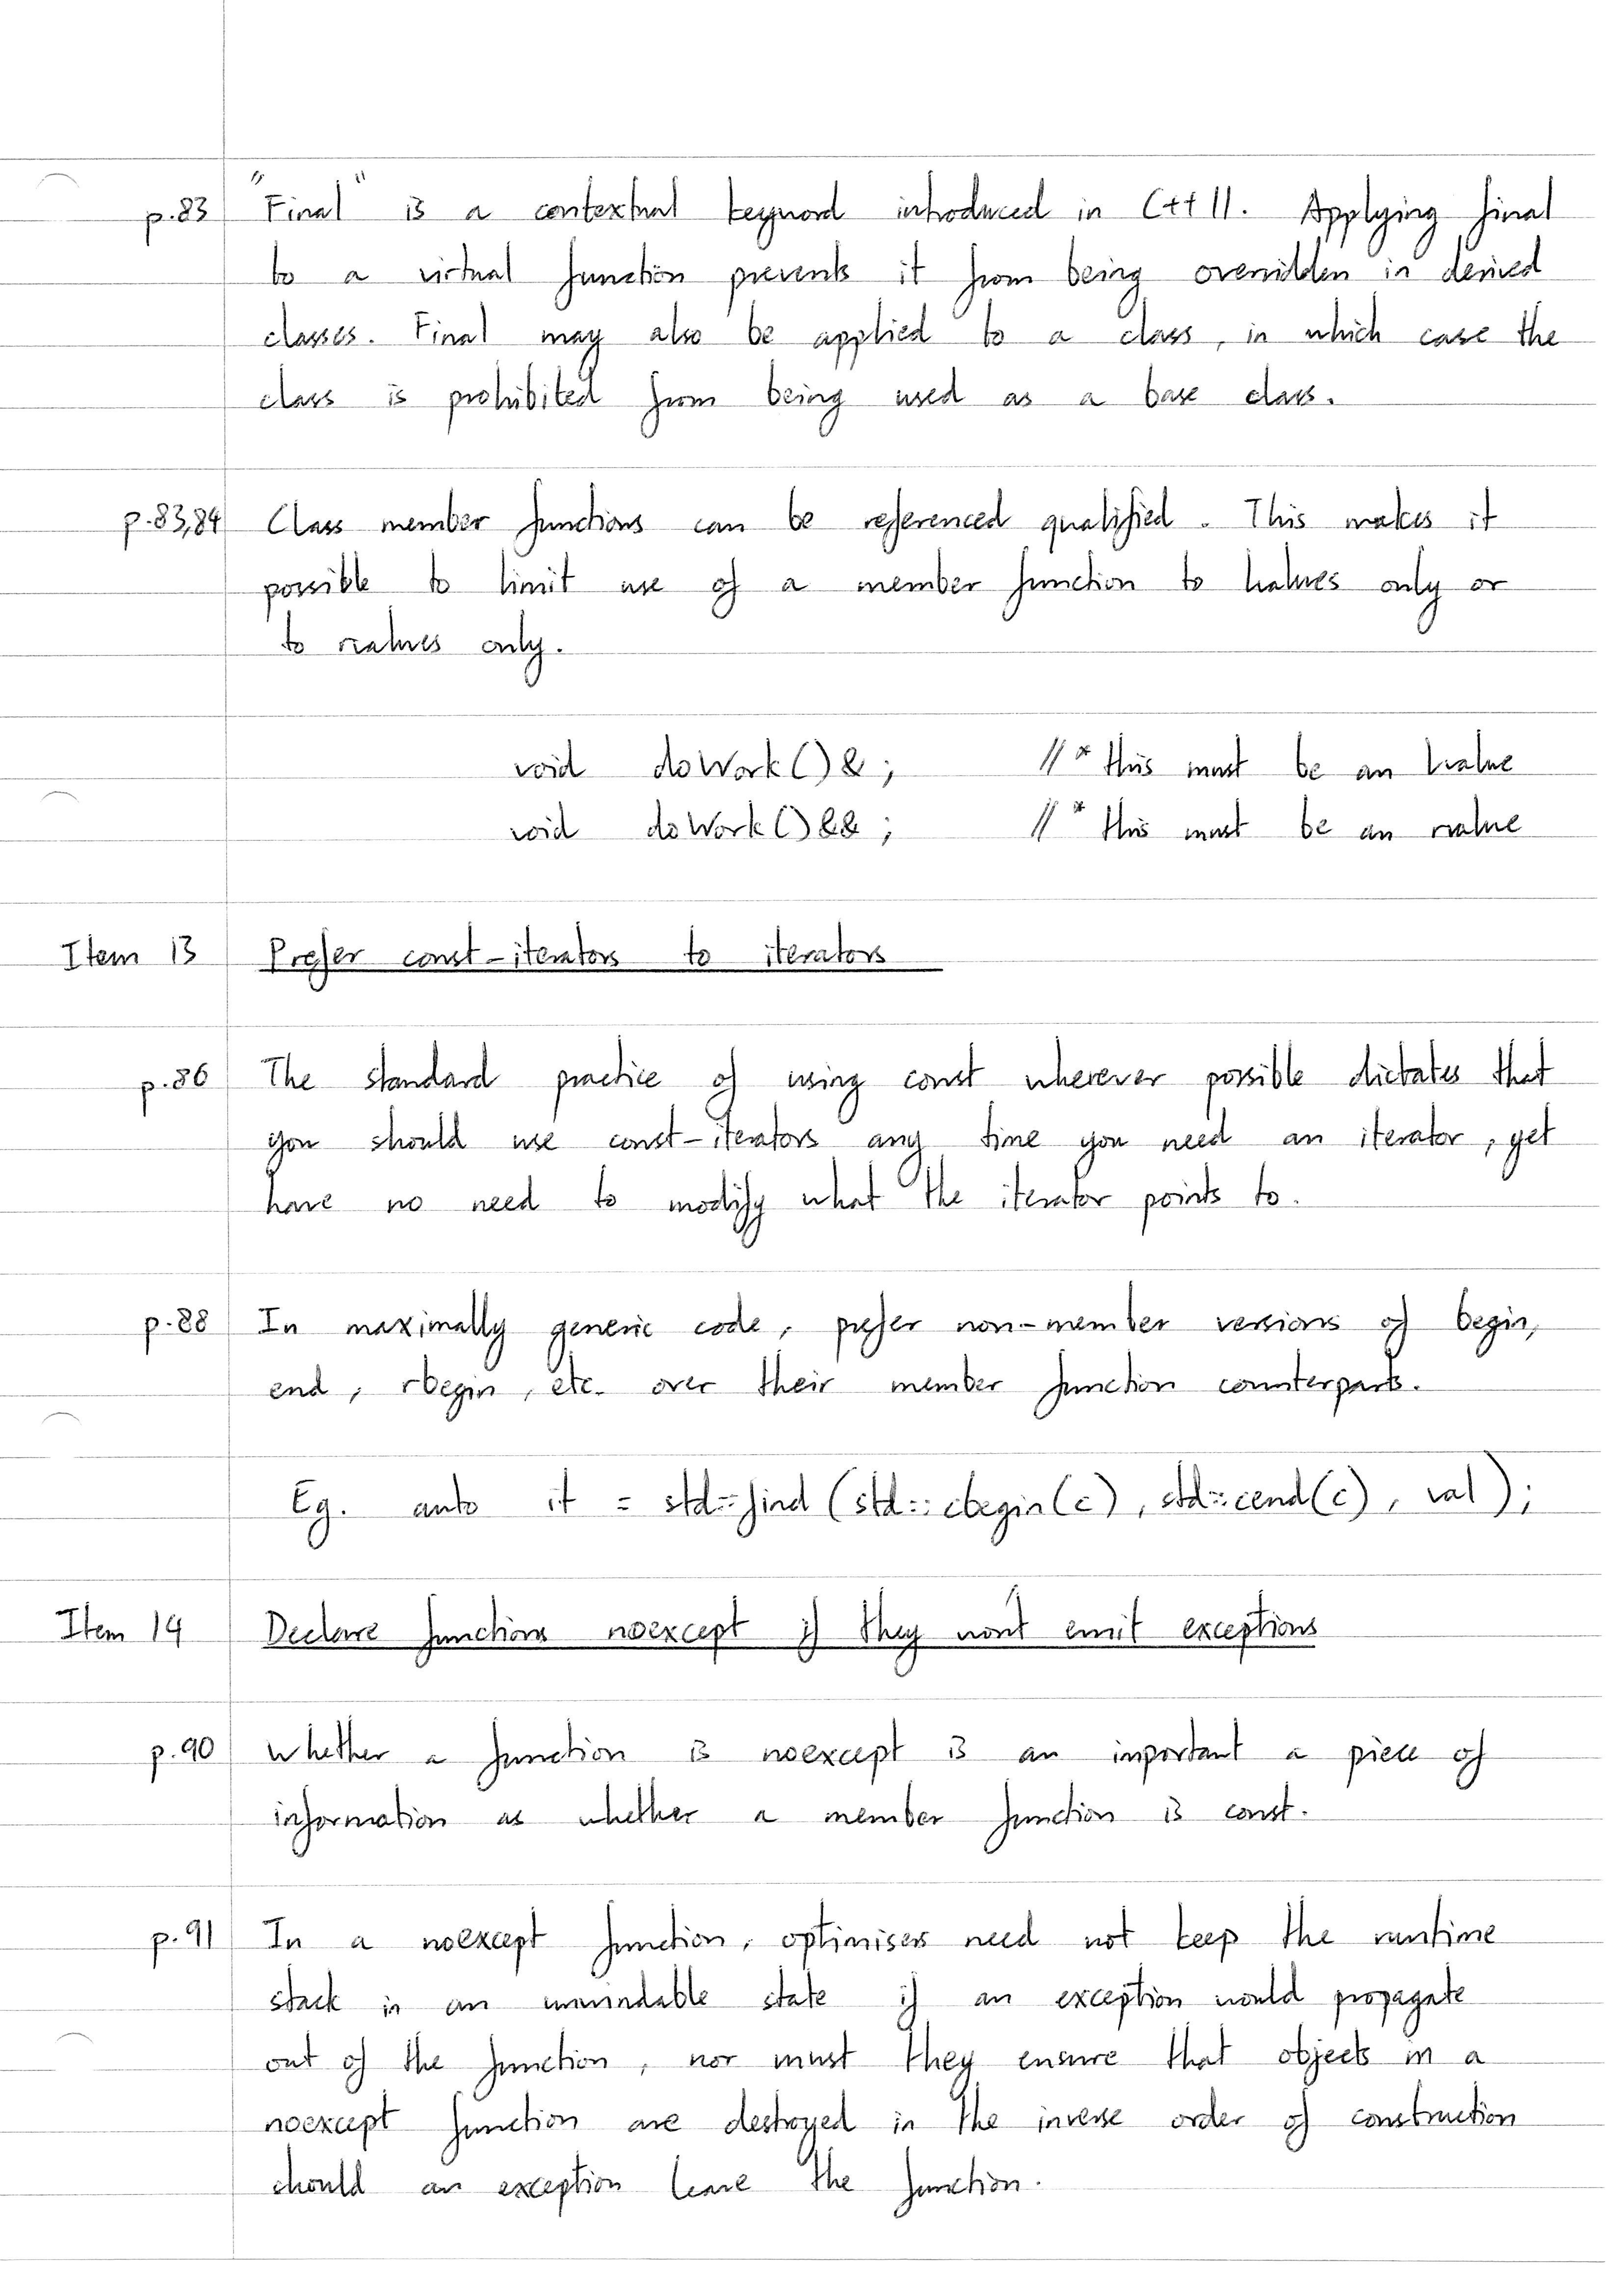 p.83 "Final" is a contextual keyword introduced in C++11. Applying final
to a virtual function prevents it from being overridden in derived
classes. Final may also be applied to a class, in which case the
class is prohibited from being used as a base class.
p.83,84 Class member functions can be referenced qualified. This makes it
possible to limit use of a member function to lvalues only or
to rvalues only.
void doWork()&; //*this must be an lvalue
void doWork()&&; //*this must be an rvalue
Item 13 Prefer const-iterators to iterators
p.86 The standard practice of using const wherever possible dictates that
you should use const-iterators any time you need an iterator, yet
have no need to modify what the iterator points to.
p.88 In maximally generic code, prefer non-member versions of begin,
end, rbegin, etc. over their member function counterparts.
Eg. auto it = std::find(std::cbegin(c), std::cend(c), val);
Item 14 Declare functions noexcept if they won't emit exceptions
p.90 Whether a function is noexcept is an important a piece of
information as whether a member function is const.
p.91 In a noexcept function, optimisers need not keep the runtime
stack in an unwindable state if an exception would propagate
out of the function, nor must they ensure that objects in a
noexcept function are destroyed in the inverse order of construction
should an exception leave the function.